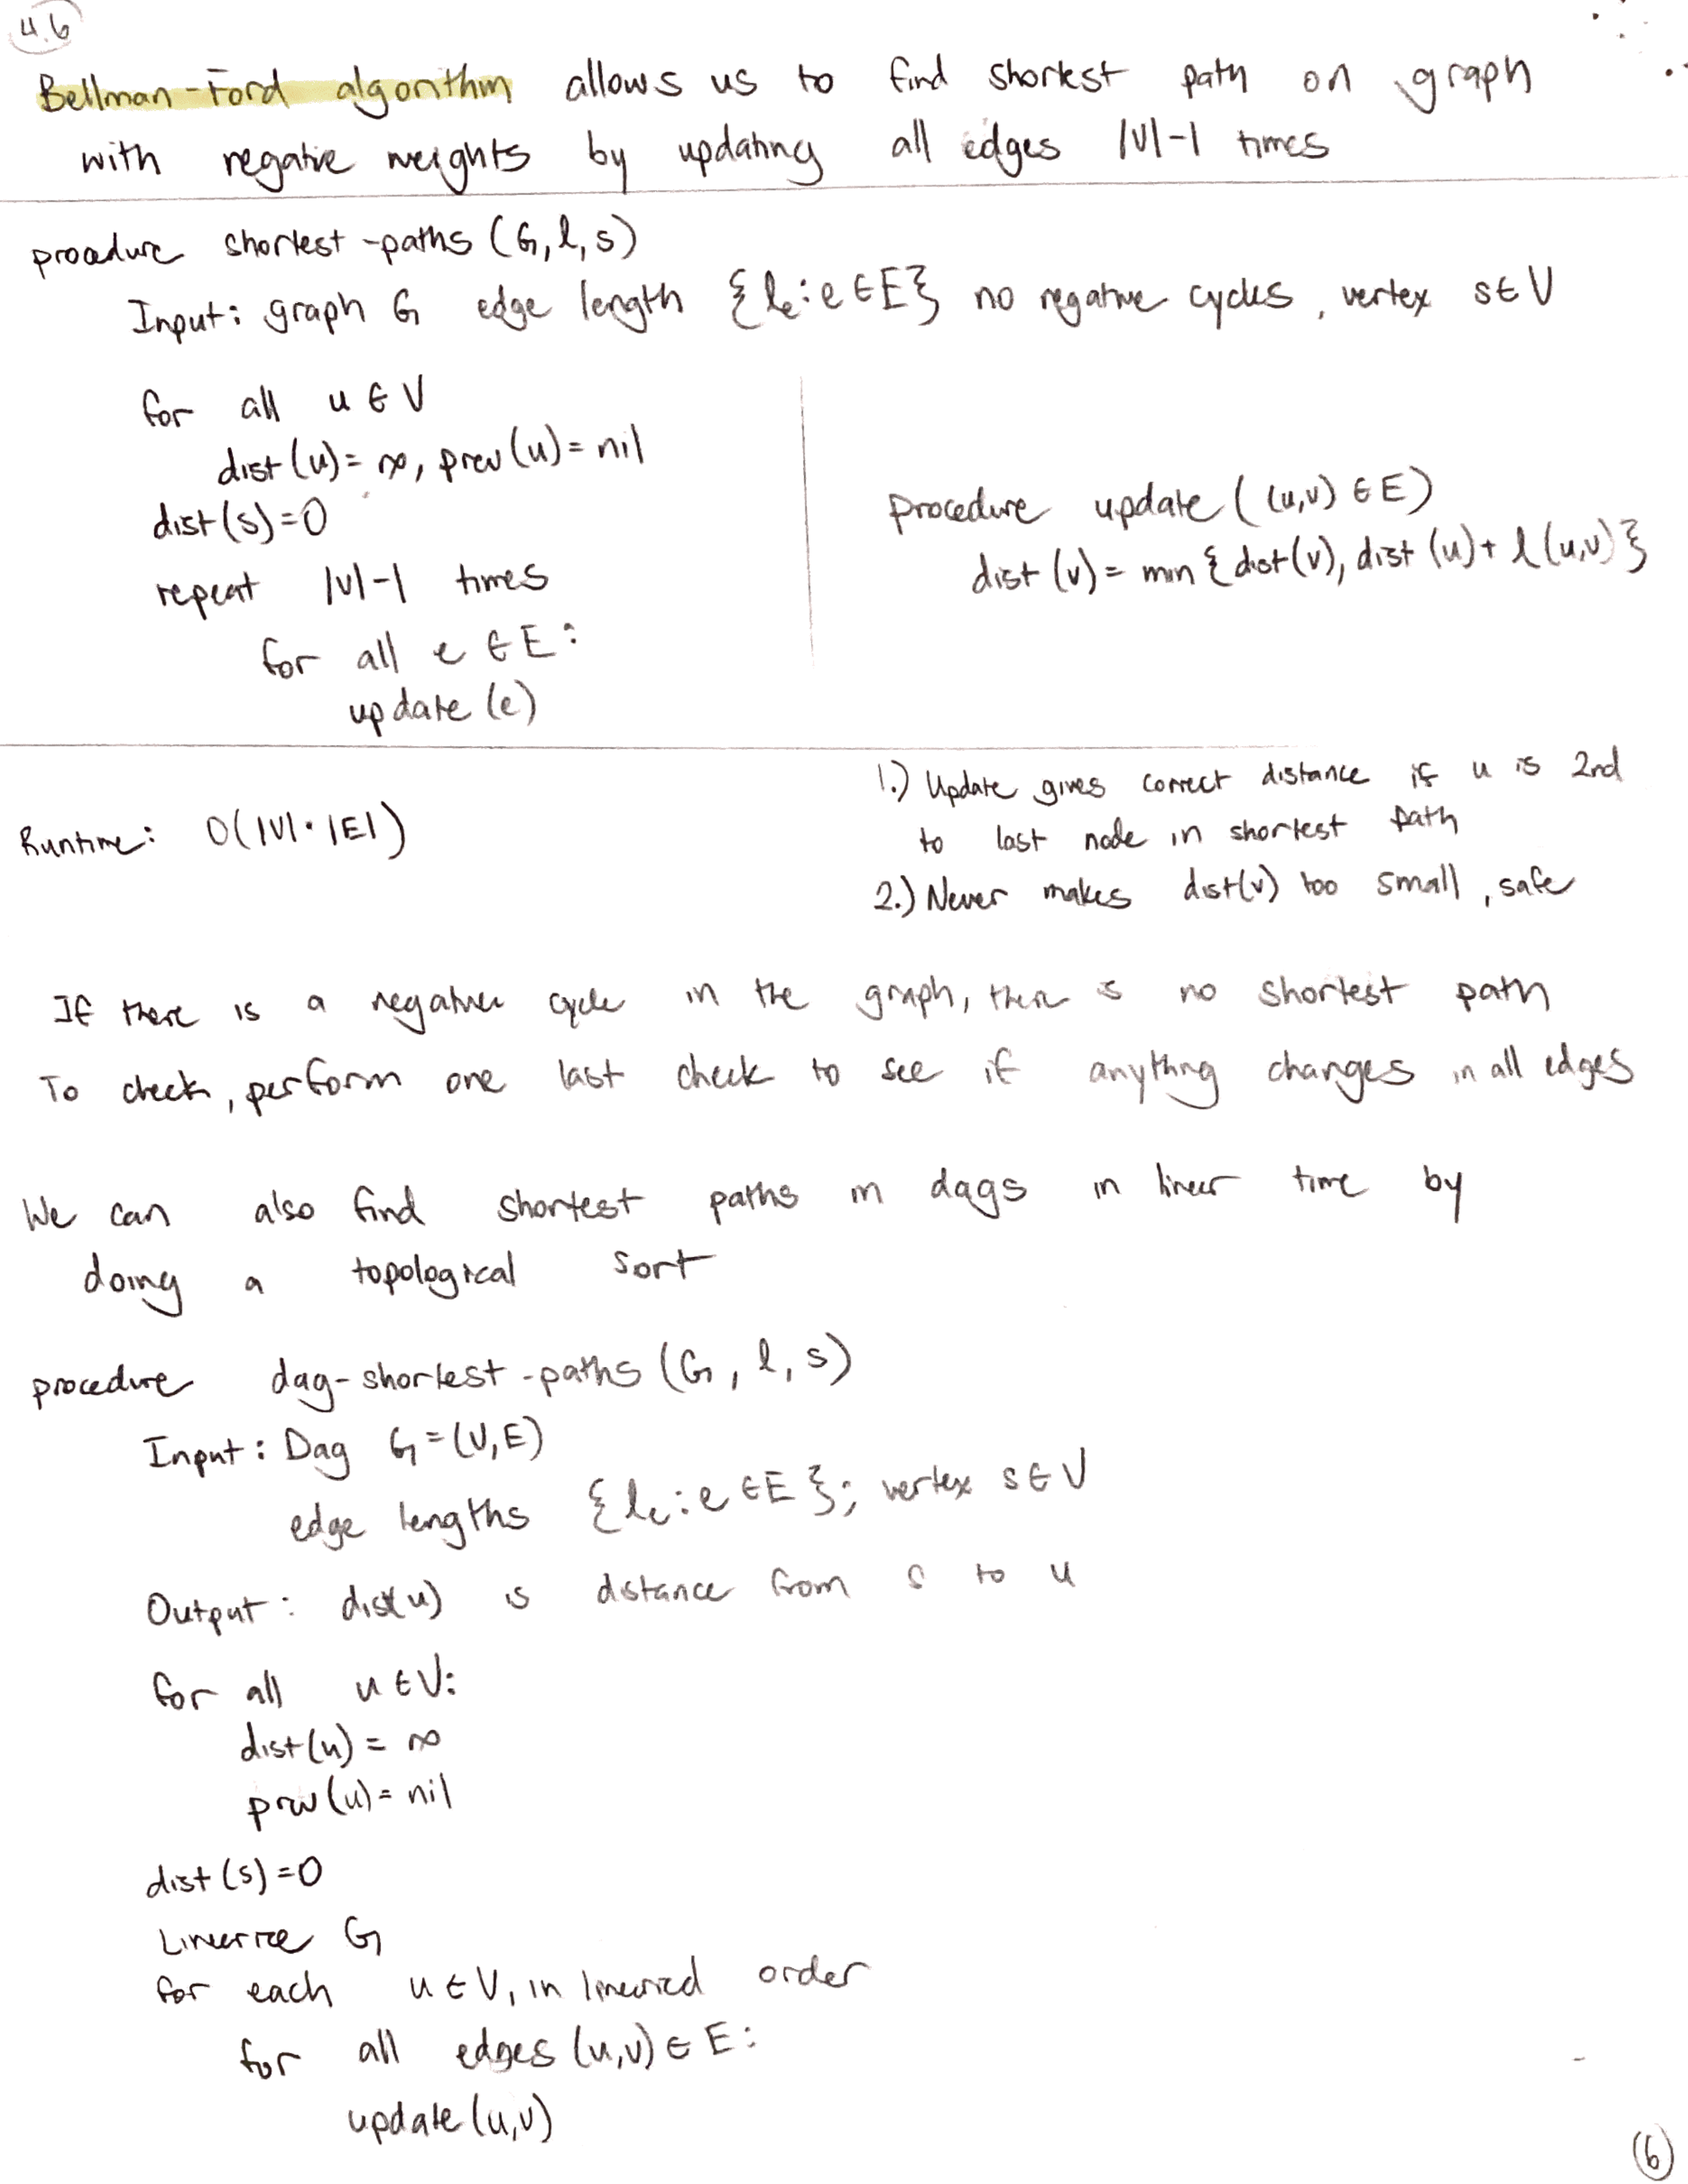 4.6
Bellman-Ford algorithm allows us to find shortest path on graph
with negative weights by updating all edges |V|-1 times
procedure shortest-paths (G, l, s)
Input: graph G edge length {le : e ∈ E} no negative cycles, vertex s ∈ V
for all u ∈ V
dist(u) = ∞, prev(u) = nil
dist(s) = 0
repeat |V|-1 times
for all e ∈ E:
update(e)
procedure update ((u,v) ∈ E)
dist(v) = min {dist(v), dist(u) + l(u,v)}
Runtime: O(|V|·|E|)
1.) Update gives correct distance if u is 2nd
to last node in shortest path
2.) Never makes dist(v) too small, safe
If there is a negative cycle in the graph, there is no shortest path
To check, perform one last check to see if anything changes in all edges
We can also find shortest paths in dags in linear time by
doing a topological sort
procedure dag-shortest-paths (G, l, s)
Input: Dag G = (V,E)
edge lengths {le : e ∈ E}; vertex s ∈ V
Output: dist(u) is distance from s to u
for all u ∈ V:
dist(u) = ∞
prev(u) = nil
dist(s) = 0
Linearize G
for each u ∈ V, in linearized order
for all edges (u,v) ∈ E:
update(u,v)
(6)